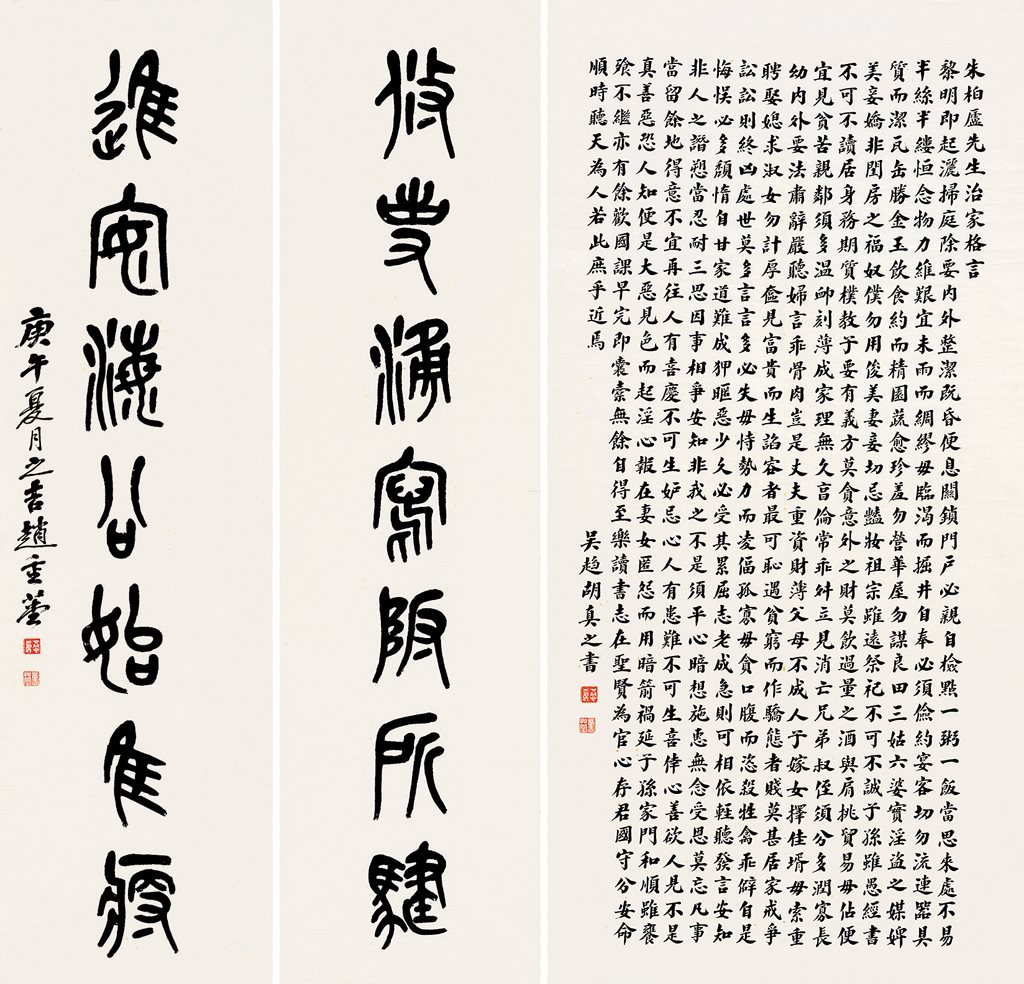 朱柏廬先生治家格言
黎明即起灑掃庭除要內外整潔既昏便息關鎖門戶必親自檢點一粥一飯當思來處不易
半絲半縷恒念物力維艱宜未雨而綢繆毋臨渴而掘井自奉必須儉約宴客切勿流連器具
質而潔瓦缶勝金玉飲食約而精園蔬愈珍羞勿營華屋勿謀良田三姑六婆實淫盜之媒婢
美妾嬌非閨房之福奴僕勿用俊美妻妾切忌豔妝祖宗雖遠祭祀不可不誠子孫雖愚經書
不可不讀居身務期質樸教子要有義方莫貪意外之財莫飲過量之酒與肩挑貿易毋佔便
宜見貧苦親鄰須多溫卹刻薄成家理無久享倫常乖舛立見消亡兄弟叔侄須分多潤寡長
幼內外要法肅辭嚴聽婦言乖骨肉豈是丈夫重資財薄父母不成人子嫁女擇佳壻毋索重
聘娶媳求淑女勿計厚奩見富貴而生諂容者最可恥遇貧窮而作驕態者賤莫甚居家戒爭
訟訟則終凶處世莫多言言多必失毋恃勢力而凌偪孤寡毋貪口腹而恣殺牲禽乖僻自是
悔悮必多頹惰自甘家道難成狎暱惡少久必受其累屈志老成急則可相依輕聽發言安知
非人之譖愬當忍耐三思因事相爭安知非我之不是須平心暗想施惠無念受恩莫忘凡事
當留餘地得意不宜再往人有喜慶不可生妒忌心人有患難不可生喜倖心善欲人見不是
真善惡恐人知便是大惡見色而起淫心報在妻女匿怨而用暗箭禍延子孫家門和順雖饔
飧不繼亦有餘歡國課早完即囊橐無餘自得至樂讀書志在聖賢為官心存君國守分安命
順時聽天為人若此庶乎近焉
吳趨胡真之書
寫陂所
進
公始隹
庚午夏月之吉趙